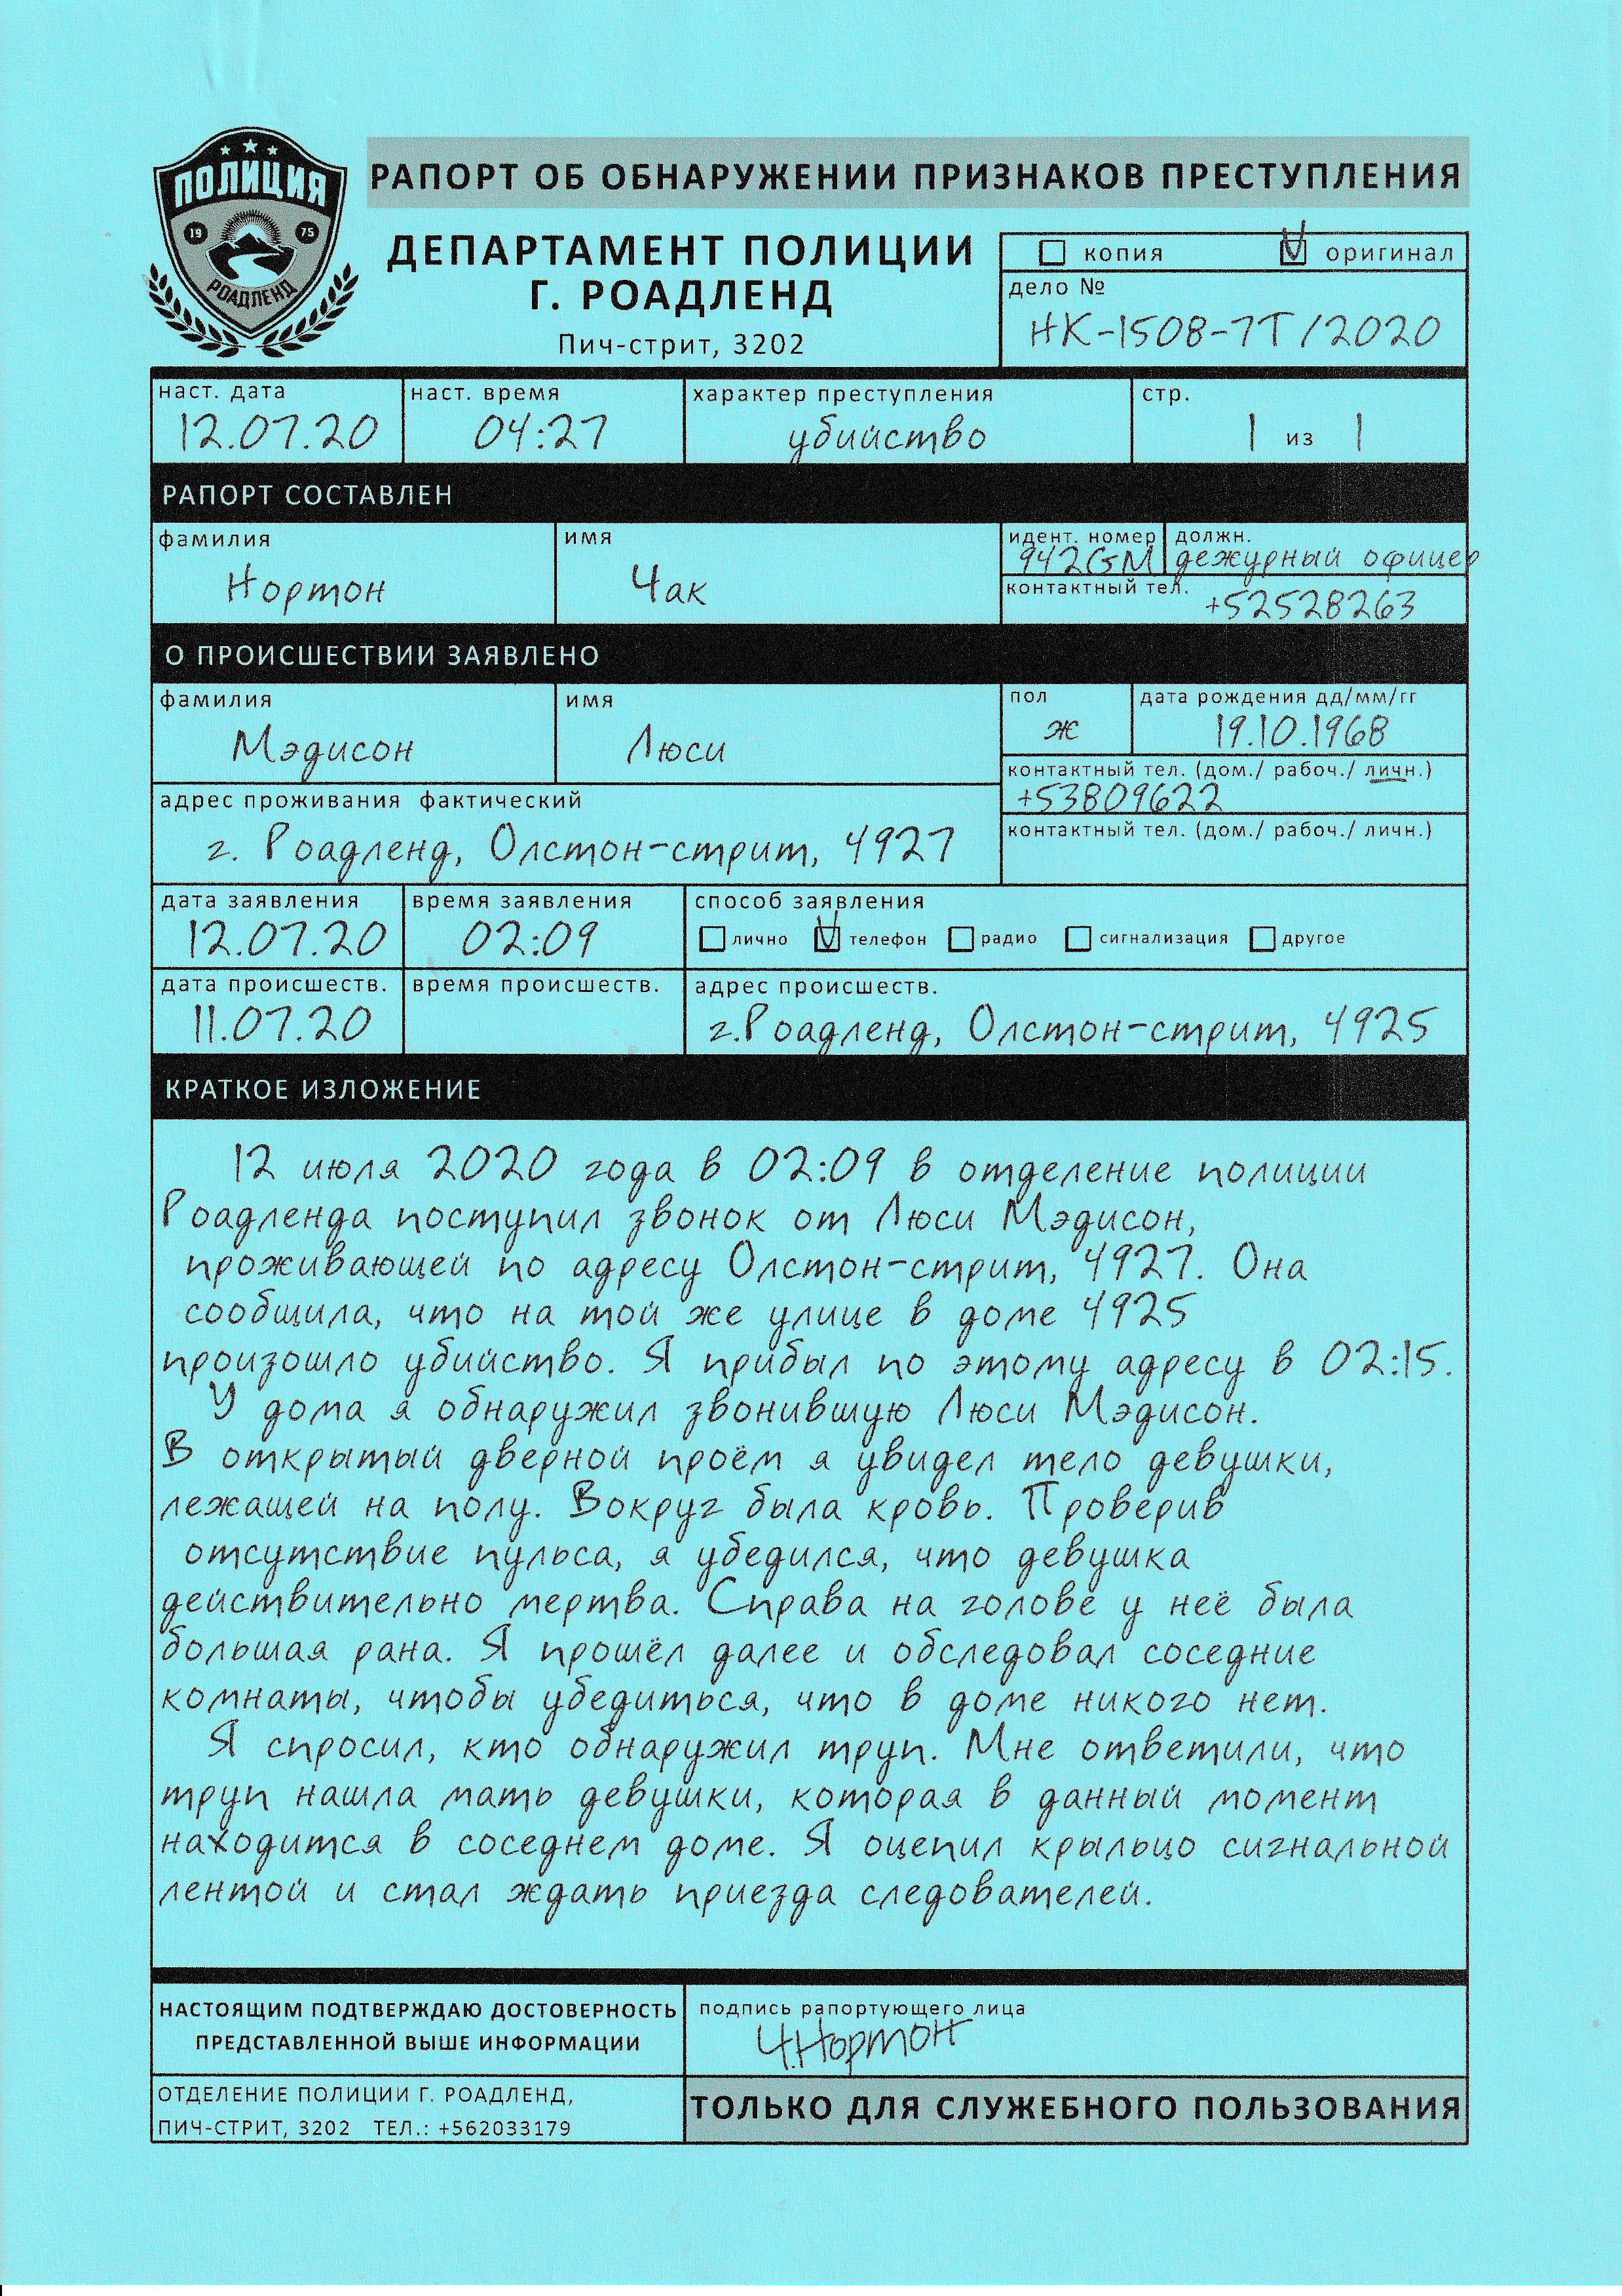 ПОЛИЦИЯ
19 75
РОАДЛЕНД
РАПОРТ ОБ ОБНАРУЖЕНИИ ПРИЗНАКОВ ПРЕСТУПЛЕНИЯ
ДЕПАРТАМЕНТ ПОЛИЦИИ
Г. РОАДЛЕНД
Пич-стрит, 3202
копия оригинал
дело №
НК-1508-7Т/2020
наст. дата наст. время характер преступления стр.
12.07.20 04:27 убийство 1 из 1
РАПОРТ СОСТАВЛЕН
фамилия имя идент. номер должн.
942GM дежурный офицер
Нортон Чак
контактный тел.
+52528263
О ПРОИСШЕСТВИИ ЗАЯВЛЕНО
фамилия имя пол дата рождения дд/мм/гг
Мэдисон Люси ж 19.10.1968
контактный тел. (дом./ рабоч./ личн.)
+53809622
адрес проживания фактический
контактный тел. (дом./ рабоч./ личн.)
г. Роадленд, Олстон-стрит, 4927
дата заявления время заявления способ заявления
12.07.20 02:09 лично телефон радио сигнализация другое
дата происшеств. время происшеств. адрес происшеств.
11.07.20 г.Роадленд, Олстон-стрит, 4925
КРАТКОЕ ИЗЛОЖЕНИЕ
12 июля 2020 года в 02:09 в отделение полиции
Роадленда поступил звонок от Люси Мэдисон,
проживающей по адресу Олстон-стрит, 4927. Она
сообщила, что на той же улице в доме 4925
произошло убийство. Я прибыл по этому адресу в 02:15.
У дома я обнаружил звонившую Люси Мэдисон.
В открытый дверной проём я увидел тело девушки,
лежащей на полу. Вокруг была кровь. Проверив
отсутствие пульса, я убедился, что девушка
действительно мертва. Справа на голове у неё была
большая рана. Я прошёл далее и обследовал соседние
комнаты, чтобы убедиться, что в доме никого нет.
Я спросил, кто обнаружил труп. Мне ответили, что
труп нашла мать девушки, которая в данный момент
находится в соседнем доме. Я оцепил крыльцо сигнальной
лентой и стал ждать приезда следователей.
НАСТОЯЩИМ ПОДТВЕРЖДАЮ ДОСТОВЕРНОСТЬ
ПРЕДСТАВЛЕННОЙ ВЫШЕ ИНФОРМАЦИИ
подпись рапортующего лица
Ч.Нортон
ОТДЕЛЕНИЕ ПОЛИЦИИ Г. РОАДЛЕНД,
ПИЧ-СТРИТ, 3202 ТЕЛ.: +562033179
ТОЛЬКО ДЛЯ СЛУЖЕБНОГО ПОЛЬЗОВАНИЯ